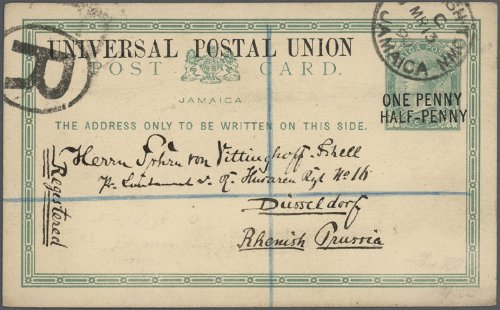 UNIVERSAL POSTAL UNION
POST CARD.
JAMAICA
THE ADDRESS ONLY TO BE WRITTEN ON THIS SIDE.
R
C
MR 13
JAMAICA
ONE PENNY
HALF-PENNY
Registered
Herrn Frhrn von Vittinghoff-Schell
Pr. Lieutenant Husaren Rgt No 11
Düsseldorf
Rhenish Prussia